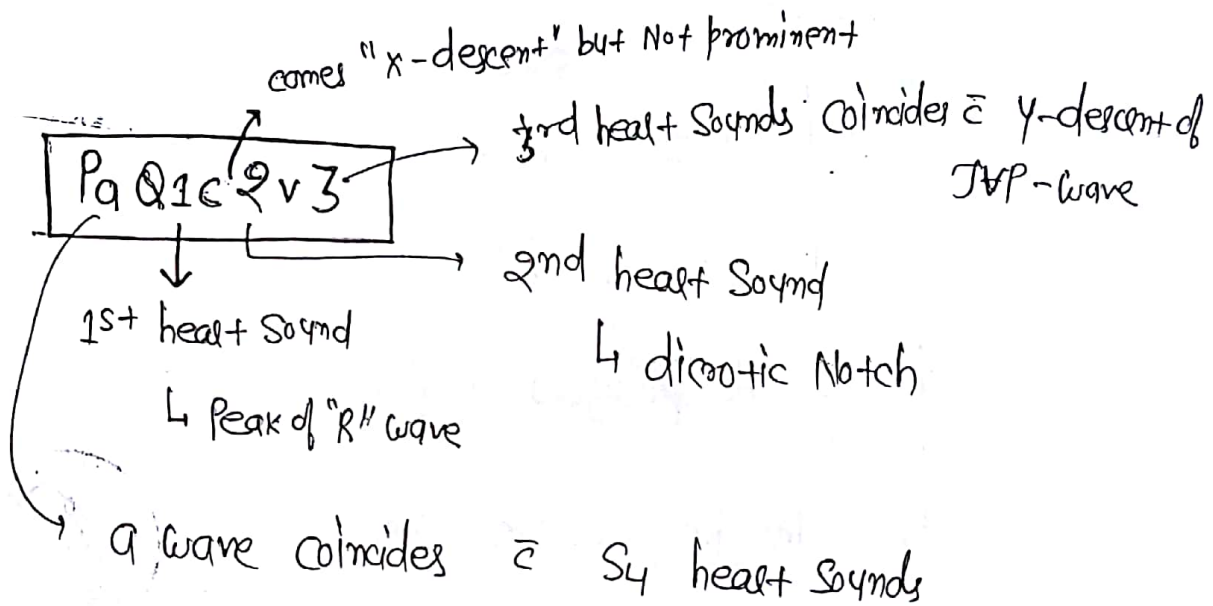 comes "x-descent" but Not prominent
3rd heart Sounds coincides c̄ y-descent of
JVP-wave
Pa Q1c2v3
2nd heart Sound
↳ dicrotic Notch
1st heart Sound
↳ Peak of "R" wave
a wave coincides c̄ S4 heart Sounds